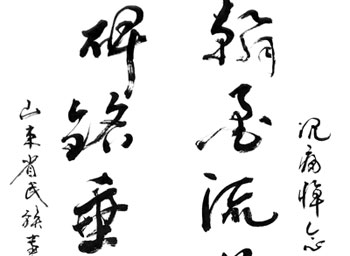 沉痛悼念
翰墨流
碑铭垂
山东省民族书